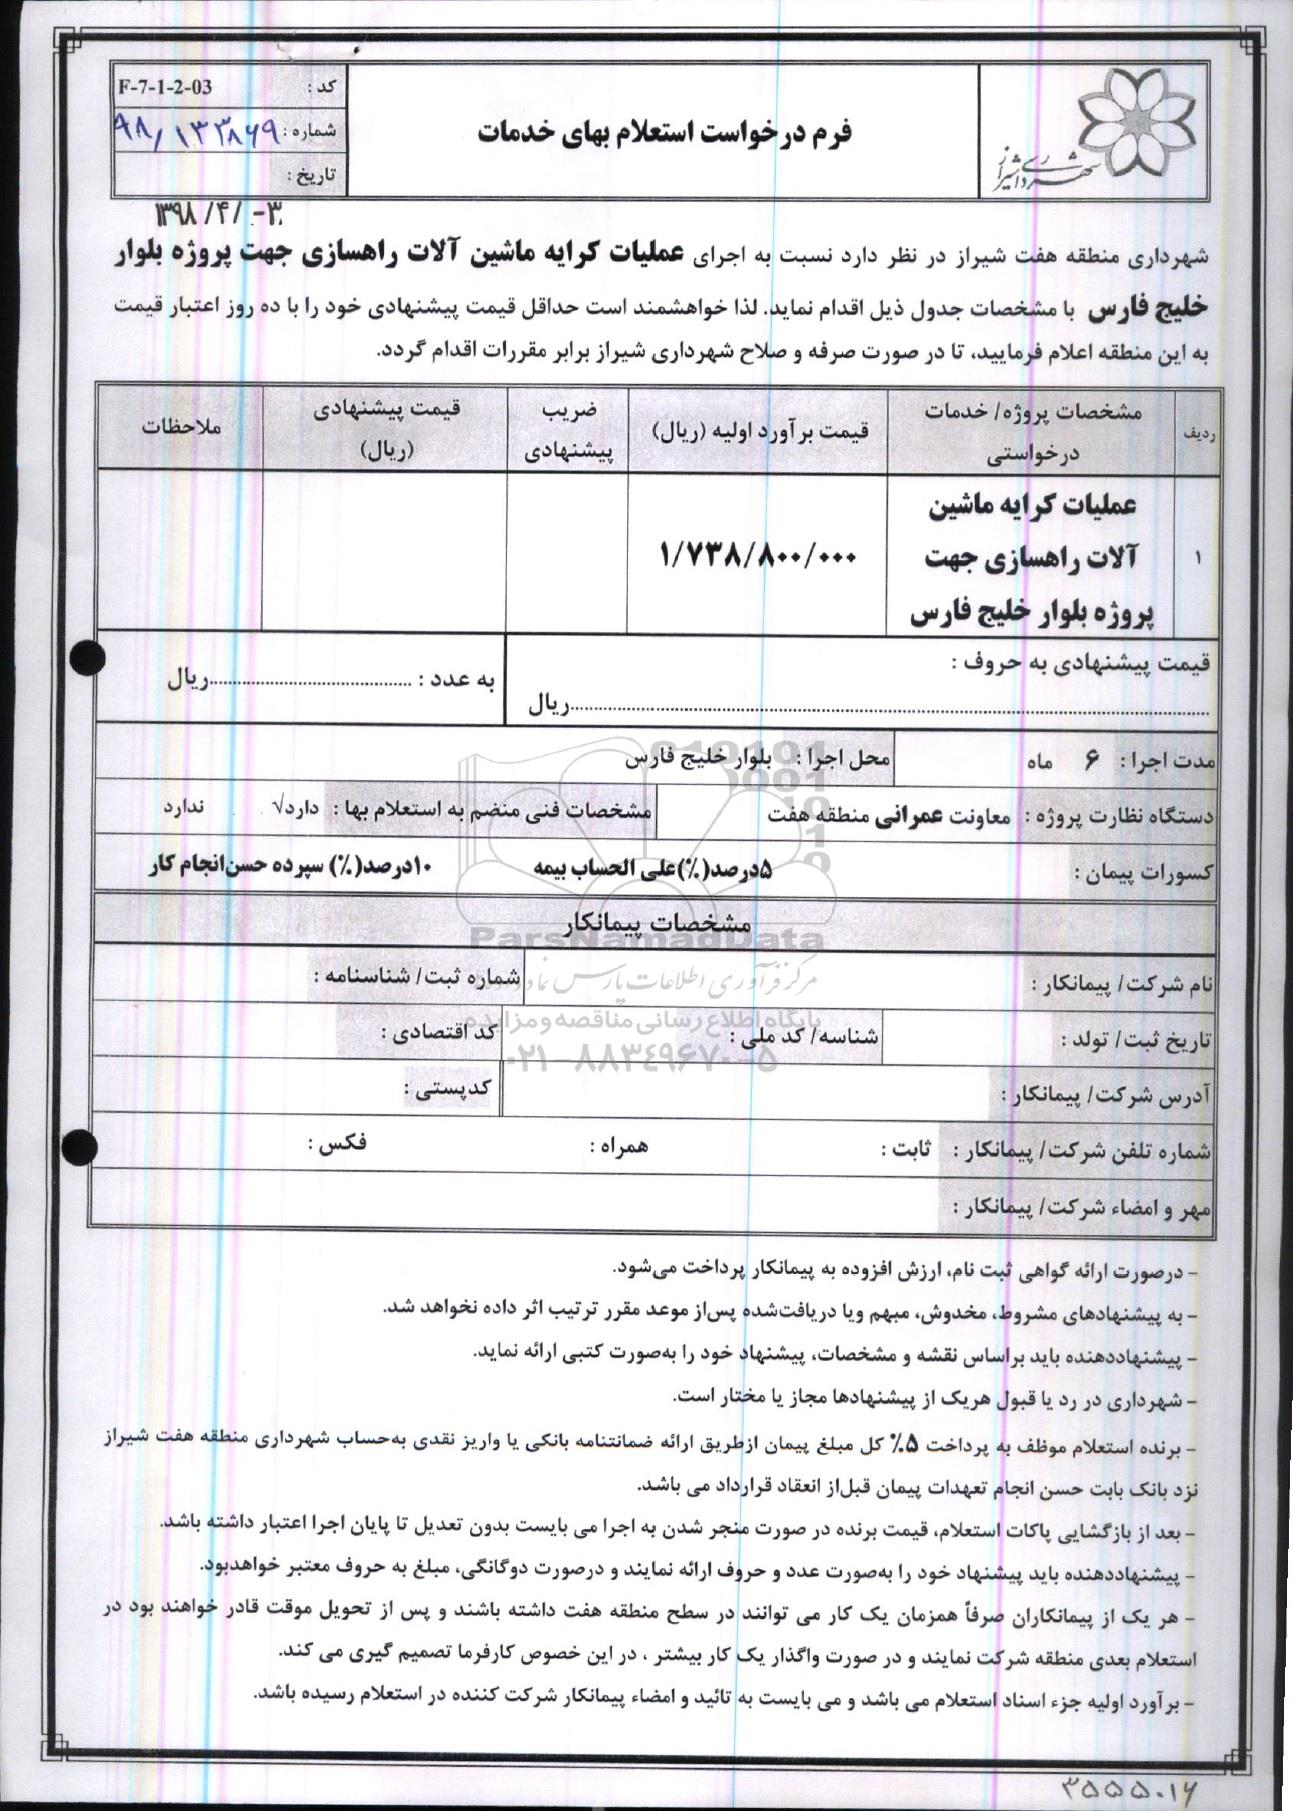 شهرداری شیراز
فرم درخواست استعلام بهای خدمات
کد : F-7-1-2-03
شماره : ۹۸/۱۳۳۸۶۹
تاریخ :
۱۳۹۸/۴/۰۳
شهرداری منطقه هفت شیراز در نظر دارد نسبت به اجرای عملیات کرایه ماشین آلات راهسازی جهت پروژه بلوار
خلیج فارس با مشخصات جدول ذیل اقدام نماید. لذا خواهشمند است حداقل قیمت پیشنهادی خود را با ده روز اعتبار قیمت
به این منطقه اعلام فرمایید، تا در صورت صرفه و صلاح شهرداری شیراز برابر مقررات اقدام گردد.
ردیف | مشخصات پروژه/ خدمات درخواستی | قیمت برآورد اولیه (ریال) | ضریب پیشنهادی | قیمت پیشنهادی (ریال) | ملاحظات
۱ | عملیات کرایه ماشین آلات راهسازی جهت پروژه بلوار خلیج فارس | ۱/۷۳۸/۸۰۰/۰۰۰
قیمت پیشنهادی به حروف :
..........ریال
به عدد : ..........ریال
مدت اجرا : ۶ ماه محل اجرا : بلوار خلیج فارس
دستگاه نظارت پروژه : معاونت عمرانی منطقه هفت مشخصات فنی منضم به استعلام بها : دارد√ ندارد
کسورات پیمان : ۵درصد(٪)علی الحساب بیمه ۱۰درصد(٪) سپرده حسن‌انجام کار
مشخصات پیمانکار
ParsNamadData
نام شرکت/ پیمانکار : شماره ثبت/ شناسنامه :
مرکز فرآوری اطلاعات پارس نماد
پایگاه اطلاع رسانی مناقصه و مزایده
تاریخ ثبت/ تولد : شناسه/ کد ملی : کد اقتصادی :
۰۲۱-۸۸۳۴۹۶۷۰-۵
آدرس شرکت/ پیمانکار : کدپستی :
شماره تلفن شرکت/ پیمانکار : ثابت : همراه : فکس :
مهر و امضاء شرکت/ پیمانکار :
- درصورت ارائه گواهی ثبت نام، ارزش افزوده به پیمانکار پرداخت می‌شود.
- به پیشنهادهای مشروط، مخدوش، مبهم ویا دریافت‌شده پس‌از موعد مقرر ترتیب اثر داده نخواهد شد.
- پیشنهاددهنده باید براساس نقشه و مشخصات، پیشنهاد خود را به‌صورت کتبی ارائه نماید.
- شهرداری در رد یا قبول هریک از پیشنهادها مجاز یا مختار است.
- برنده استعلام موظف به پرداخت ۵٪ کل مبلغ پیمان ازطریق ارائه ضمانتنامه بانکی یا واریز نقدی به‌حساب شهرداری منطقه هفت شیراز
نزد بانک بابت حسن انجام تعهدات پیمان قبل‌از انعقاد قرارداد می باشد.
- بعد از بازگشایی پاکات استعلام، قیمت برنده در صورت منجر شدن به اجرا می بایست بدون تعدیل تا پایان اجرا اعتبار داشته باشد.
- پیشنهاددهنده باید پیشنهاد خود را به‌صورت عدد و حروف ارائه نمایند و درصورت دوگانگی، مبلغ به حروف معتبر خواهدبود.
- هر یک از پیمانکاران صرفاً همزمان یک کار می توانند در سطح منطقه هفت داشته باشند و پس از تحویل موقت قادر خواهند بود در
استعلام بعدی منطقه شرکت نمایند و در صورت واگذار یک کار بیشتر ، در این خصوص کارفرما تصمیم گیری می کند.
- برآورد اولیه جزء اسناد استعلام می باشد و می بایست به تائید و امضاء پیمانکار شرکت کننده در استعلام رسیده باشد.
۳۵۵۵۰۱۶